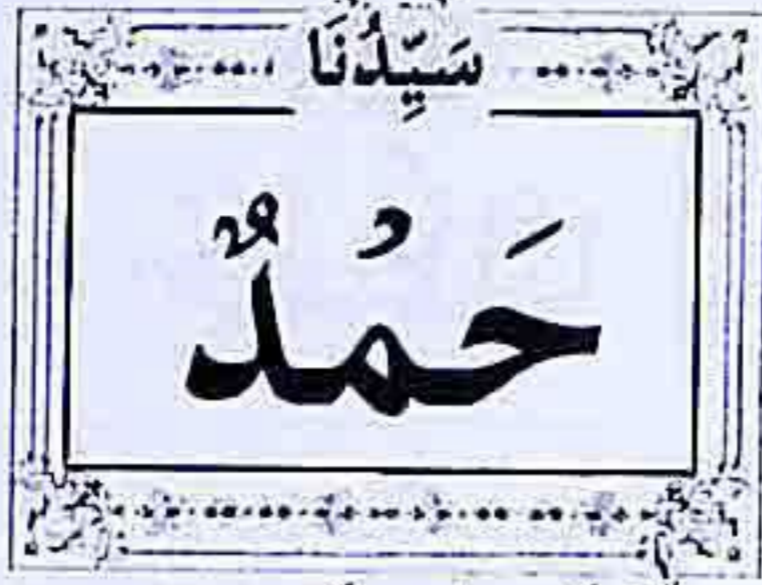 سَيِّدُنَا
حَمُدٌ